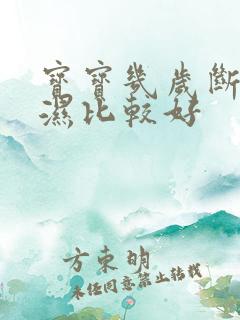 寶寶幾歲斷
濕比較好
方東明
未經同意禁止轉載